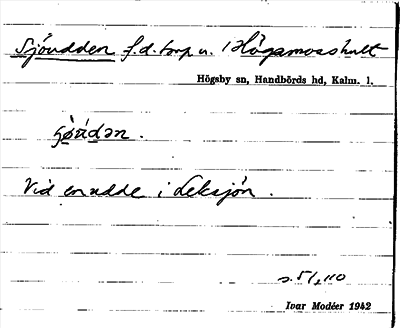 Sjöudden f.d. torp u. Högamosshult
Högsby sn, Handbörds hd, Kalm. l.
Vid en udde i Leksjön.
s. 51, 110
Ivar Modéer 1942